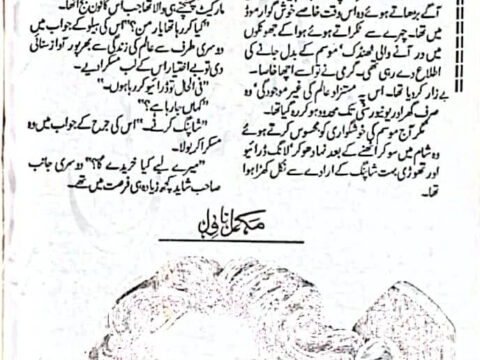 آگے بڑھاتے ہوئے وہ اس وقت خاصے خوش گوار موڈ
میں تھا۔ چہرے سے ٹکراتے ہوئے ہوا کے جھونکوں
میں در آنے والی ٹھنڈک، موسم کے بدل جانے کی
اطلاع دے رہی تھی۔ گرمی نے تو اسے اچھا خاصا
بے زار کر دیا تھا۔ اس پہ مستزاد عالم کی غیر موجودگی، وہ
صرف گھر اور یونیورسٹی تک محدود ہو کر رہ گیا تھا۔
مگر آج موسم کی خوشگواری کو محسوس کرتے ہوئے
وہ شام میں سو کر اٹھنے کے بعد نہا دھو کر، لانگ ڈرائیو
اور تھوڑی بہت شاپنگ کے ارادے سے نکل کھڑا ہوا
تھا۔
مارکیٹ پہنچنے ہی والا تھا جب اس کا فون بج اٹھا۔
"کیا کر رہا تھا یار من؟" اس کی ہیلو کے جواب میں
دوسری طرف سے عالم کی زندگی سے بھرپور آواز سنائی
دی تو بے اختیار اس کے لب مسکرا دیے۔
"فی الحال تو ڈرائیو کر رہا ہوں۔"
"کہاں جا رہا ہے؟"
"شاپنگ کرنے۔" اس کی جرح کے جواب میں وہ
مسکرا کر بولا۔
"میرے لیے کیا خریدے گا؟" دوسری جانب
صاحب شاید کچھ زیادہ ہی فرصت میں تھے۔
مکمل ناول